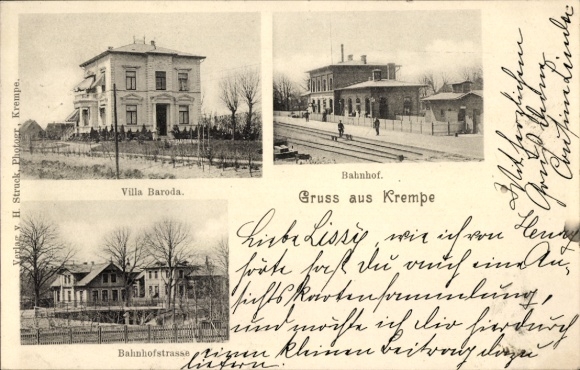 Verlag v. H. Struck, Photogr., Krempe.
Villa Baroda.
Bahnhof.
Gruss aus Krempe
Bahnhofstrasse
Liebe Lissy, wie ich von Henry
hörte hast du auch eine An-
sichtskartensammlung,
und möchte ich dir hierdurch
einen kleinen Beitrag dazu
liefern.
Mit herzlichem
Gruß